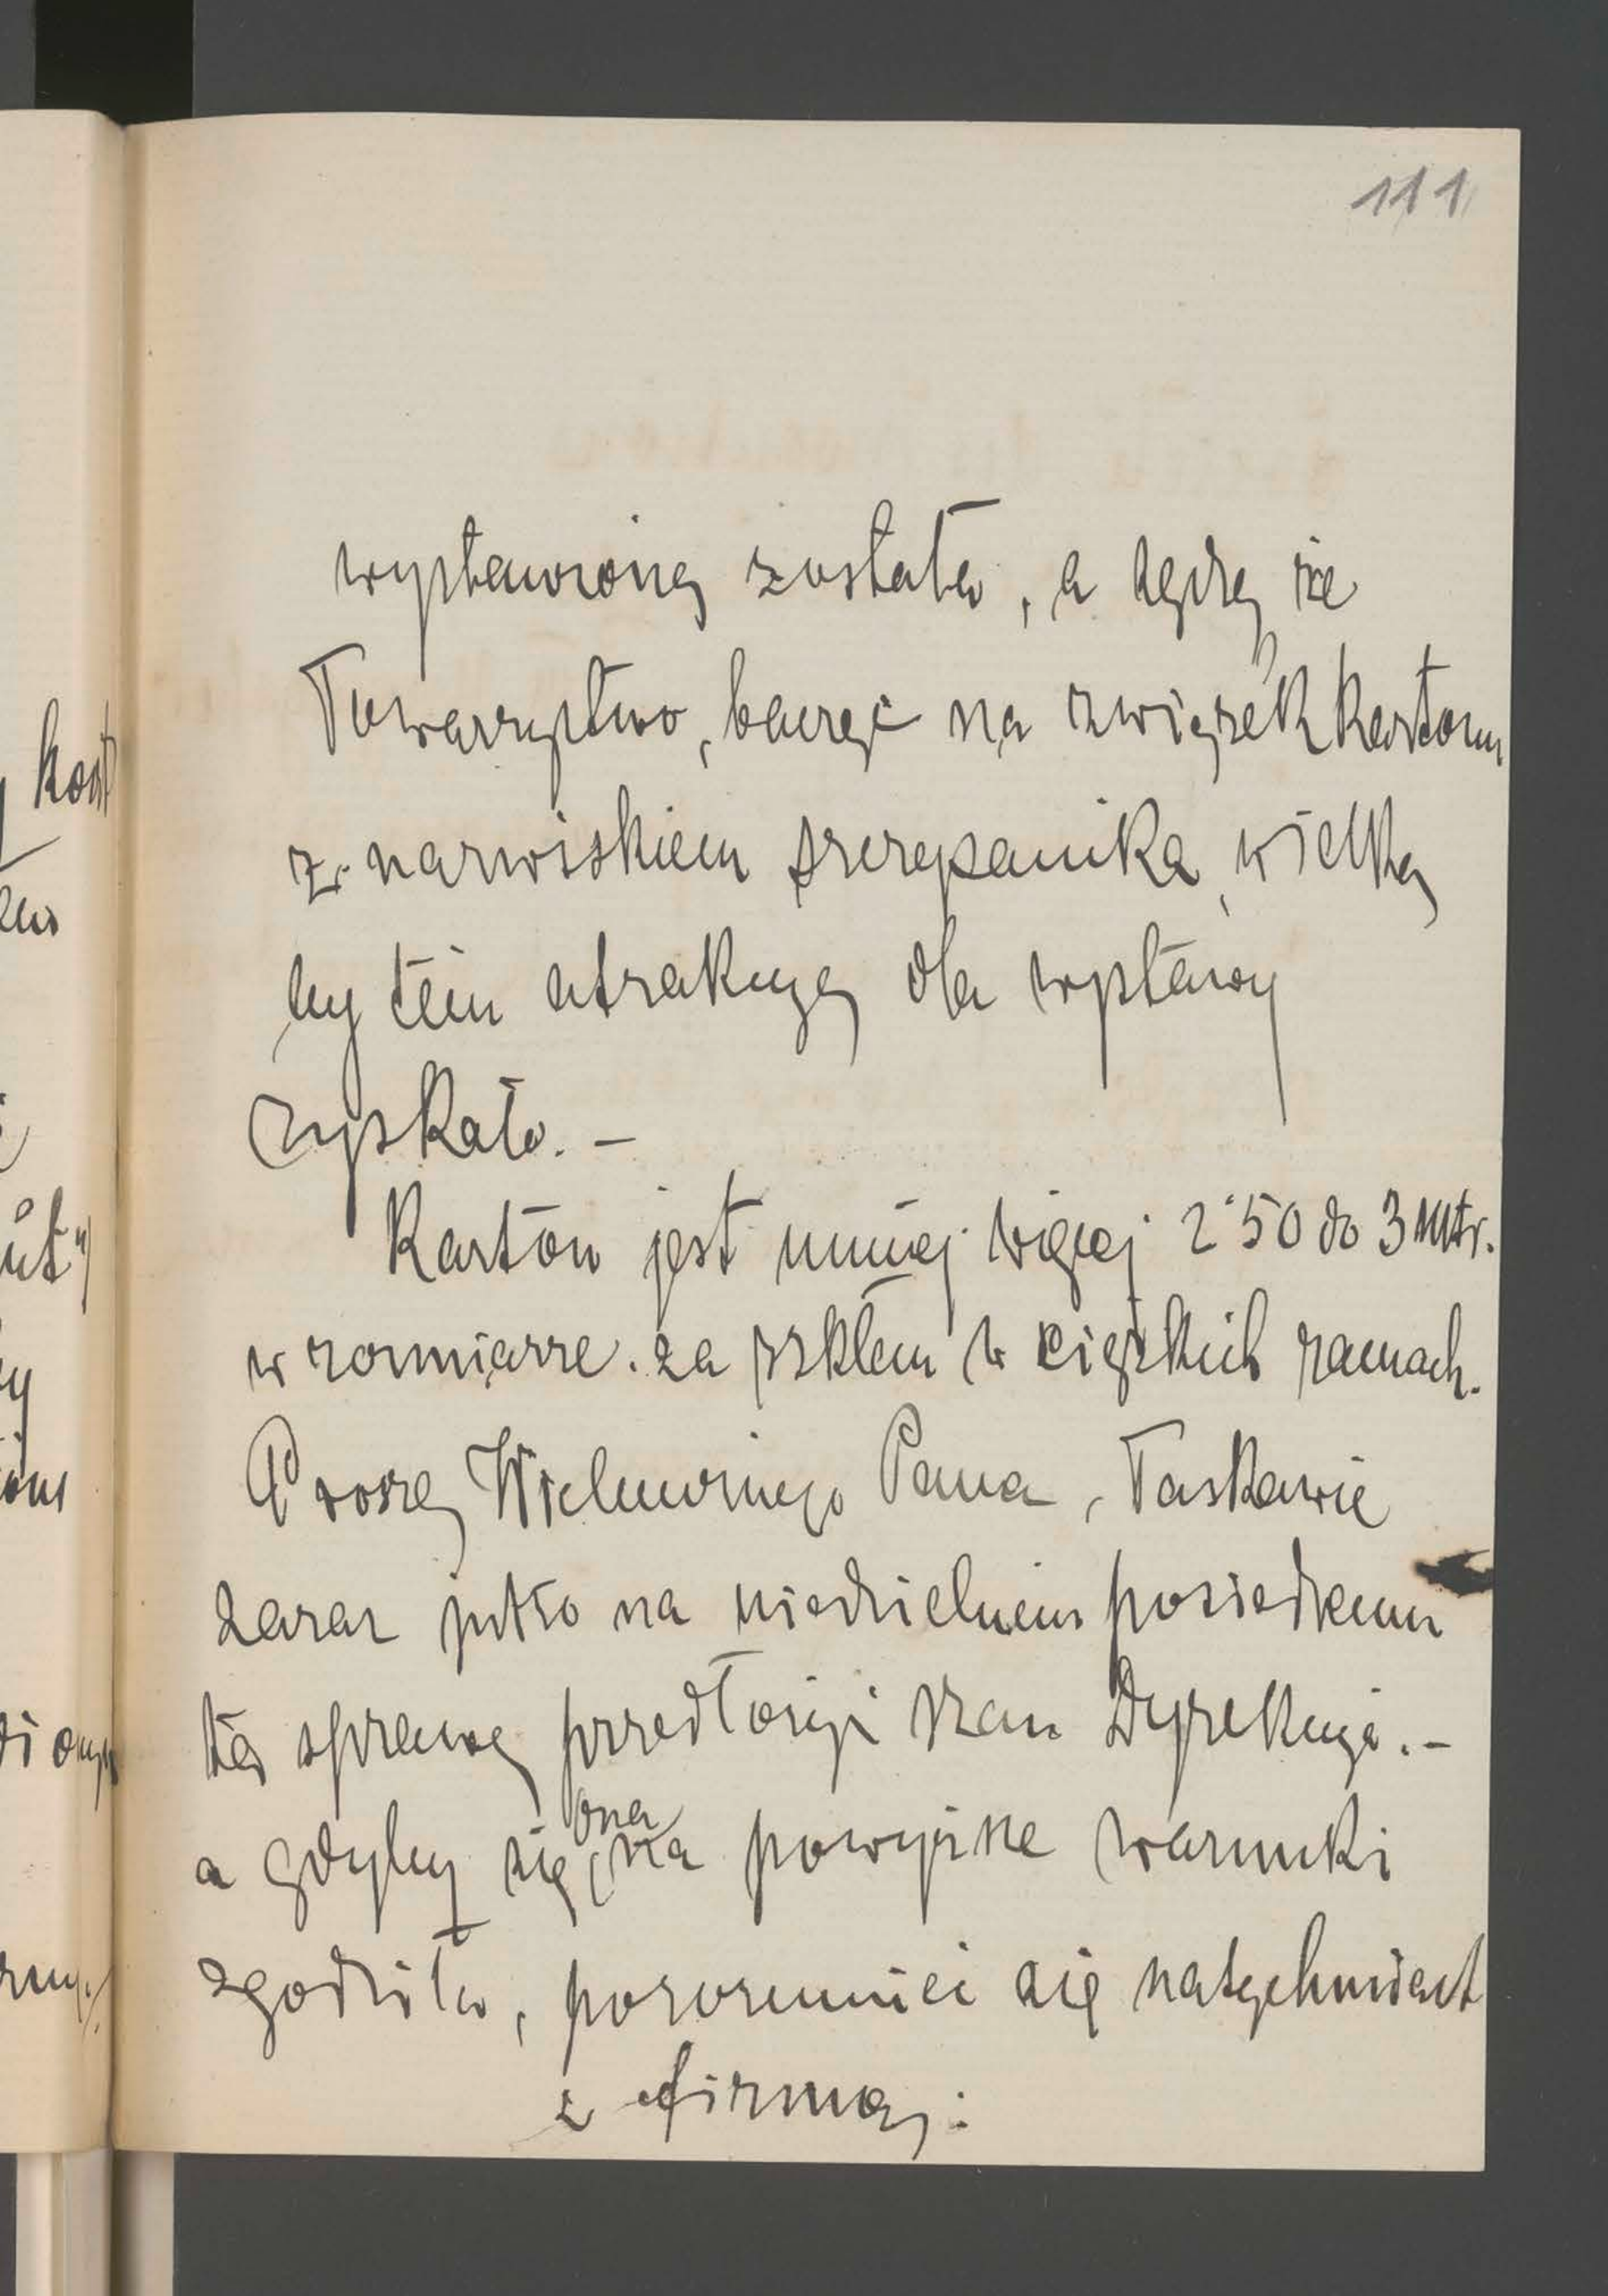 111
wystawioną została, a sądzę że
Towarzystwo, bacząc na związek kartonu
z nazwiskiem Szczepanika, wielką
by tem atrakcyę dla wystawy
zyskało. –
Karton jest mniej więcej 2·50 do 3 mtr.
w rozmiarze. za szkłem w ciężkich ramach.
Proszę Wielmożnego Pana, łaskawie
zaraz jutro na niedzielnem posiedzeniu
tę sprawę przedłożyć Szan. Dyrekcyi. –
a gdyby się ona na powyższe warunki
zgodziła, porozumieć się natychmiast
z firmą: